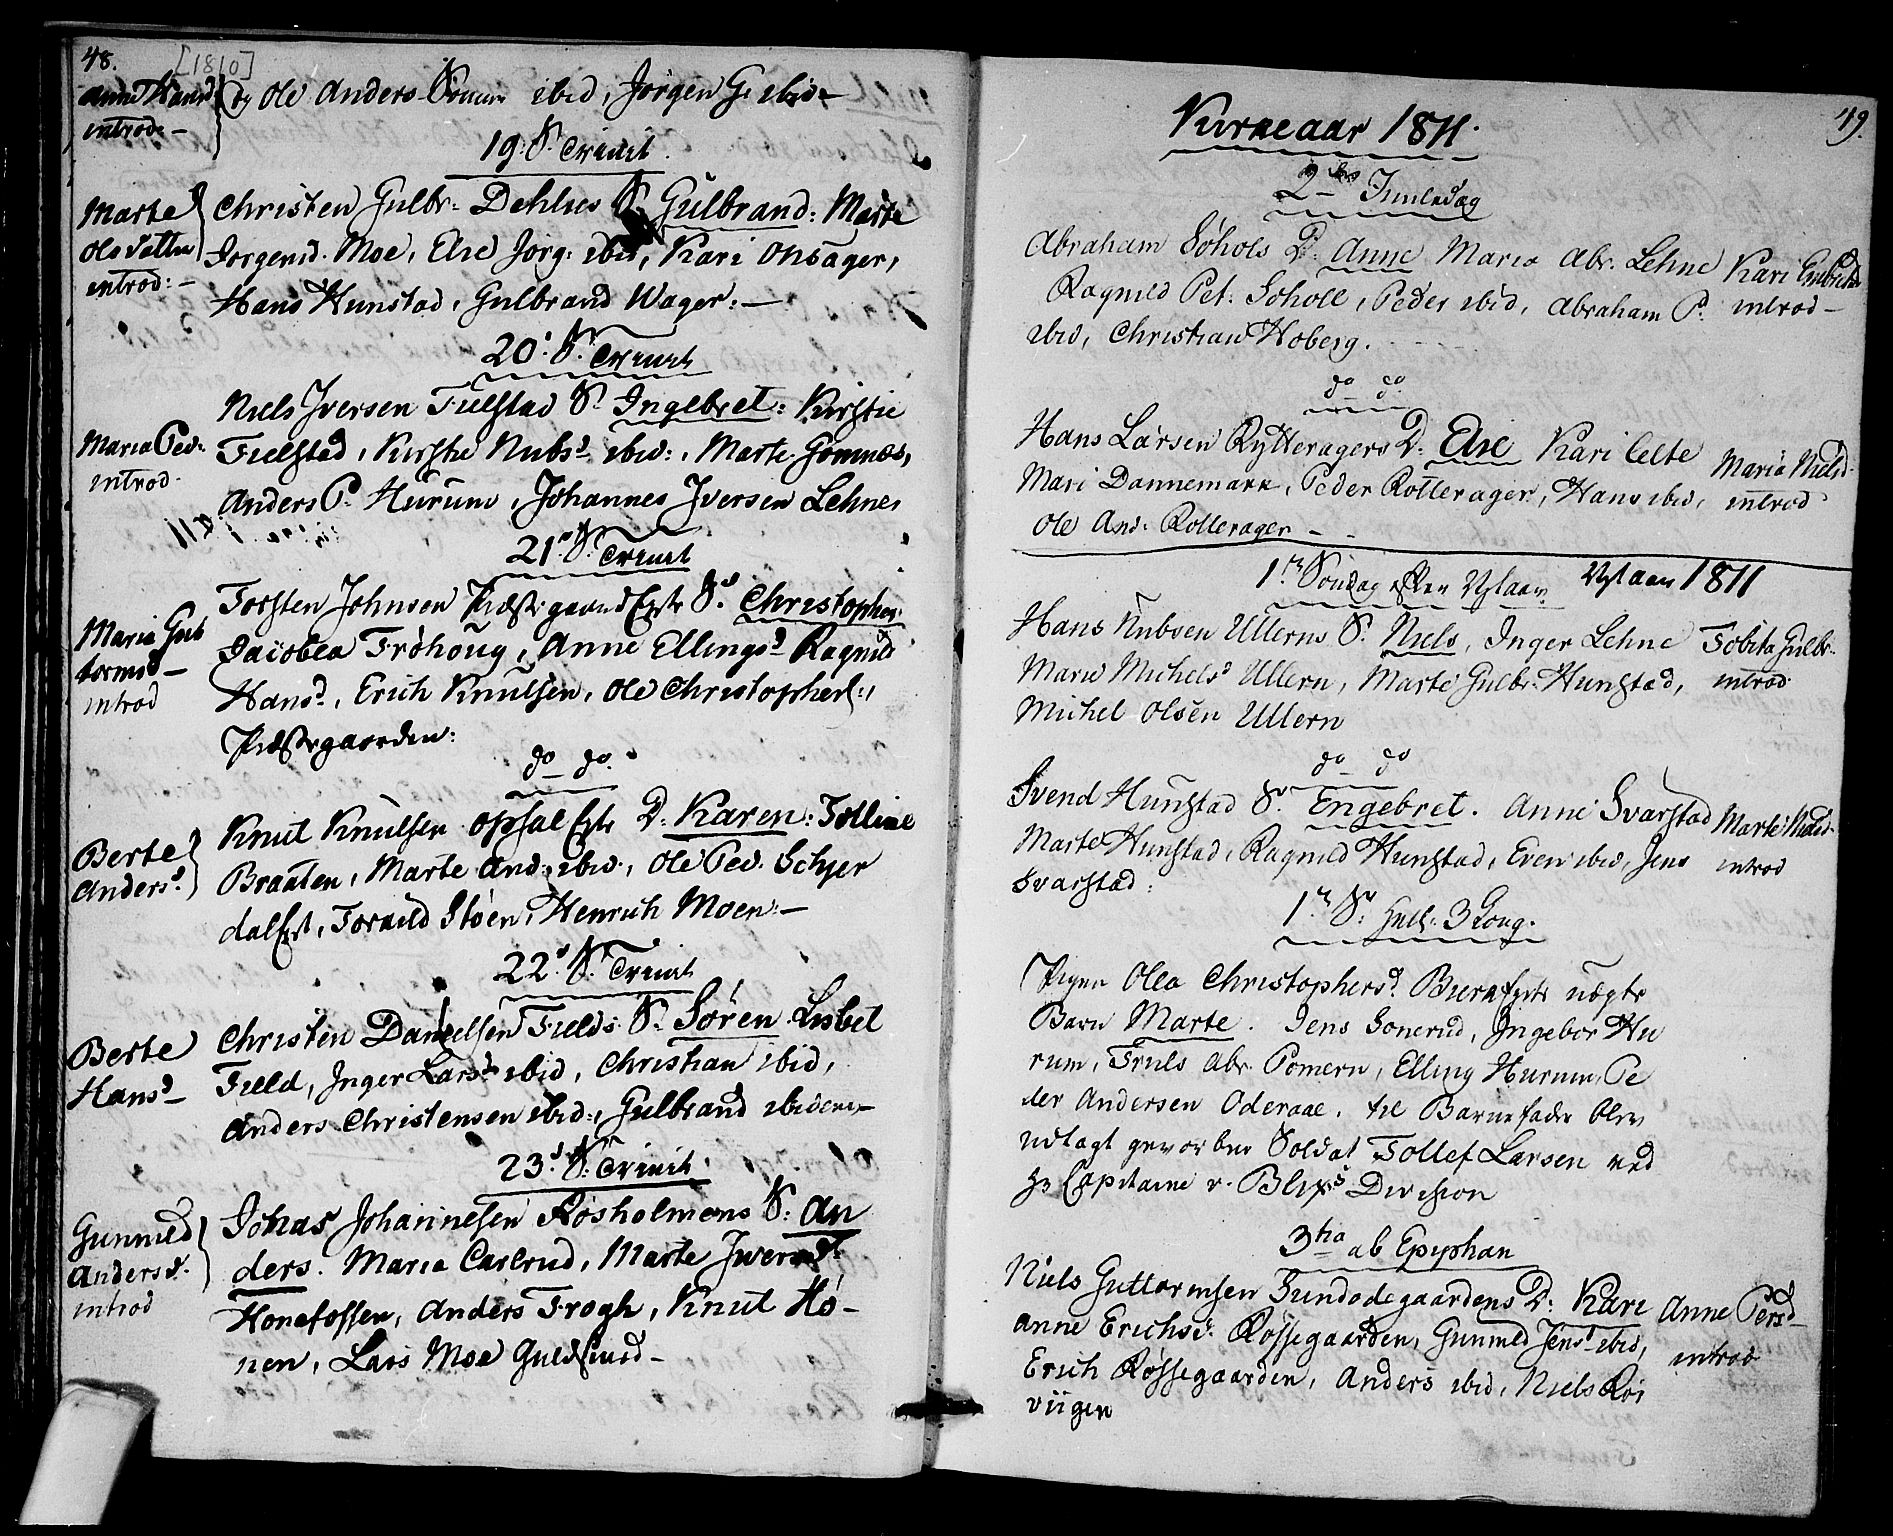 48.
[1810]
Anne Hansd
introd: -
og Ole Anders ibid, Jörgen G. ibid -
19. S. Trinit.
Marte
Olsdatter
introd: -
Christen Gulbr: Dehlies S. Gulbrand: Marte
Jorgensd. Moe, Else Jörg: ibid, Kari Onsager,
Hans Hunstad, Gulbrand Wager: -
20. S. Trinit
Maria Ped:
introd.
Niels Iversen Fielstad S. Ingebret: Kirstie
Fielstad, Kirstie Nubsd ibid:, Marte Gomnes,
Anders P. Hurum, Johannes Iversen Lehne,
21. S. Trinit
Maria Gut
tormsd -
introd
Torsten Johnsen Præstegaard Eyets S. Christopher.
Jacobea Fröhoug, Anne Ellingsd Ragnild
Hansd, Erich Knulsen, Ole Christophers.,
Præstegaarden:
do do.
Berte
Andersd.
Knut Knulsen Opsal Eyts D. Karen: Tolline
Braaten, Marte And: ibid:, Ole Ped. Schjer
dal Eyt, Toraild Stöen, Henrich Moen: -
22. S. Trinit
Berte
Hansd -
Christen Danielsen Fields S. Sören Lisbet
Field, Inger Larsd ibid, Christian ibid,
Anders Christensen ibid:, Gulbrand ibidem -
23. S. Trinit.
Gunnild
Andersd.
introd
Jonas Johannesen Rosholmens S: An
ders. Maria Carlrud, Marte Iversd
Honefossen, Anders Frogh, Knut Hö-
nen, Lars Moe Guldsmed -
49.
Kirkeaar 1811.
2den Juuledag
Abraham Söhols D. Anne Maria Abr. Lehne
Ragnild Pet: Soholl, Peder ibid, Abraham P.
ibid, Christian Hoberg.
Kari
introd -
do do
Hans Larsen Rytteragers D: Else Kari Celte
Mari Dannemark, Peder Rotterager, Hans ibid,
Ole And: Rotterager -
Maria Nielsd.
introd
1r Söndag efter Nytaar. Nytaar 1811
Hans Nubsen Ullerns S. Niels, Inger Lehne
Marie Michelsd Ullern, Marte Gulbr. Hunstad,
Michel Olsen Ullern
Tobita Gulbr.
introd
do do
Svend Hunstad S. Engebret. Anne Svarstad
Marte Hunstad, Ragnild Hunstad, Even ibid, Jens
Svarstad:
Marte Nielsd.
introd
1r S. Hell. 3 Kong.
Pigen Olea Christophersd. Bierk Eyets uægte
Barn Marte. Jens Sonerud, Ingebor Hu
rum, Truls Abr. Pomern, Elling Hurum, Pe
der Andersen Oderaae. til Barnefader blev
udlagt gevorben Soldat Tollef Larsen ved
Hr Capitaine v. Blixs Division
3tia ab Epiphan
Niels Guttormsen Sundodegaardens D: Kari
Anne Erichsd. Rössegaarden, Gunnild Jensd ibid,
Erich Rössegaarden, Anders ibid, Niels Rör
viigen
Anne Persd -
introd